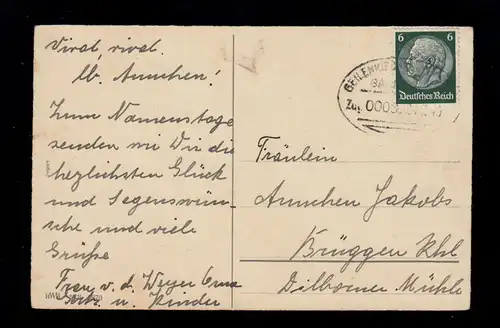 Vivat, vivat.
lb. Annchen!
Zum Namenstage
senden wir Dir die
herzlichsten Glück
und Segenswün-
sche und viele
Grüße
Frau v. d. Weyer
u. Kinder
6 6
Deutsches Reich
GEILENKI
Zug
Fräulein
Annchen Jakobs
Brüggen Rhl
Dilborner Mühle